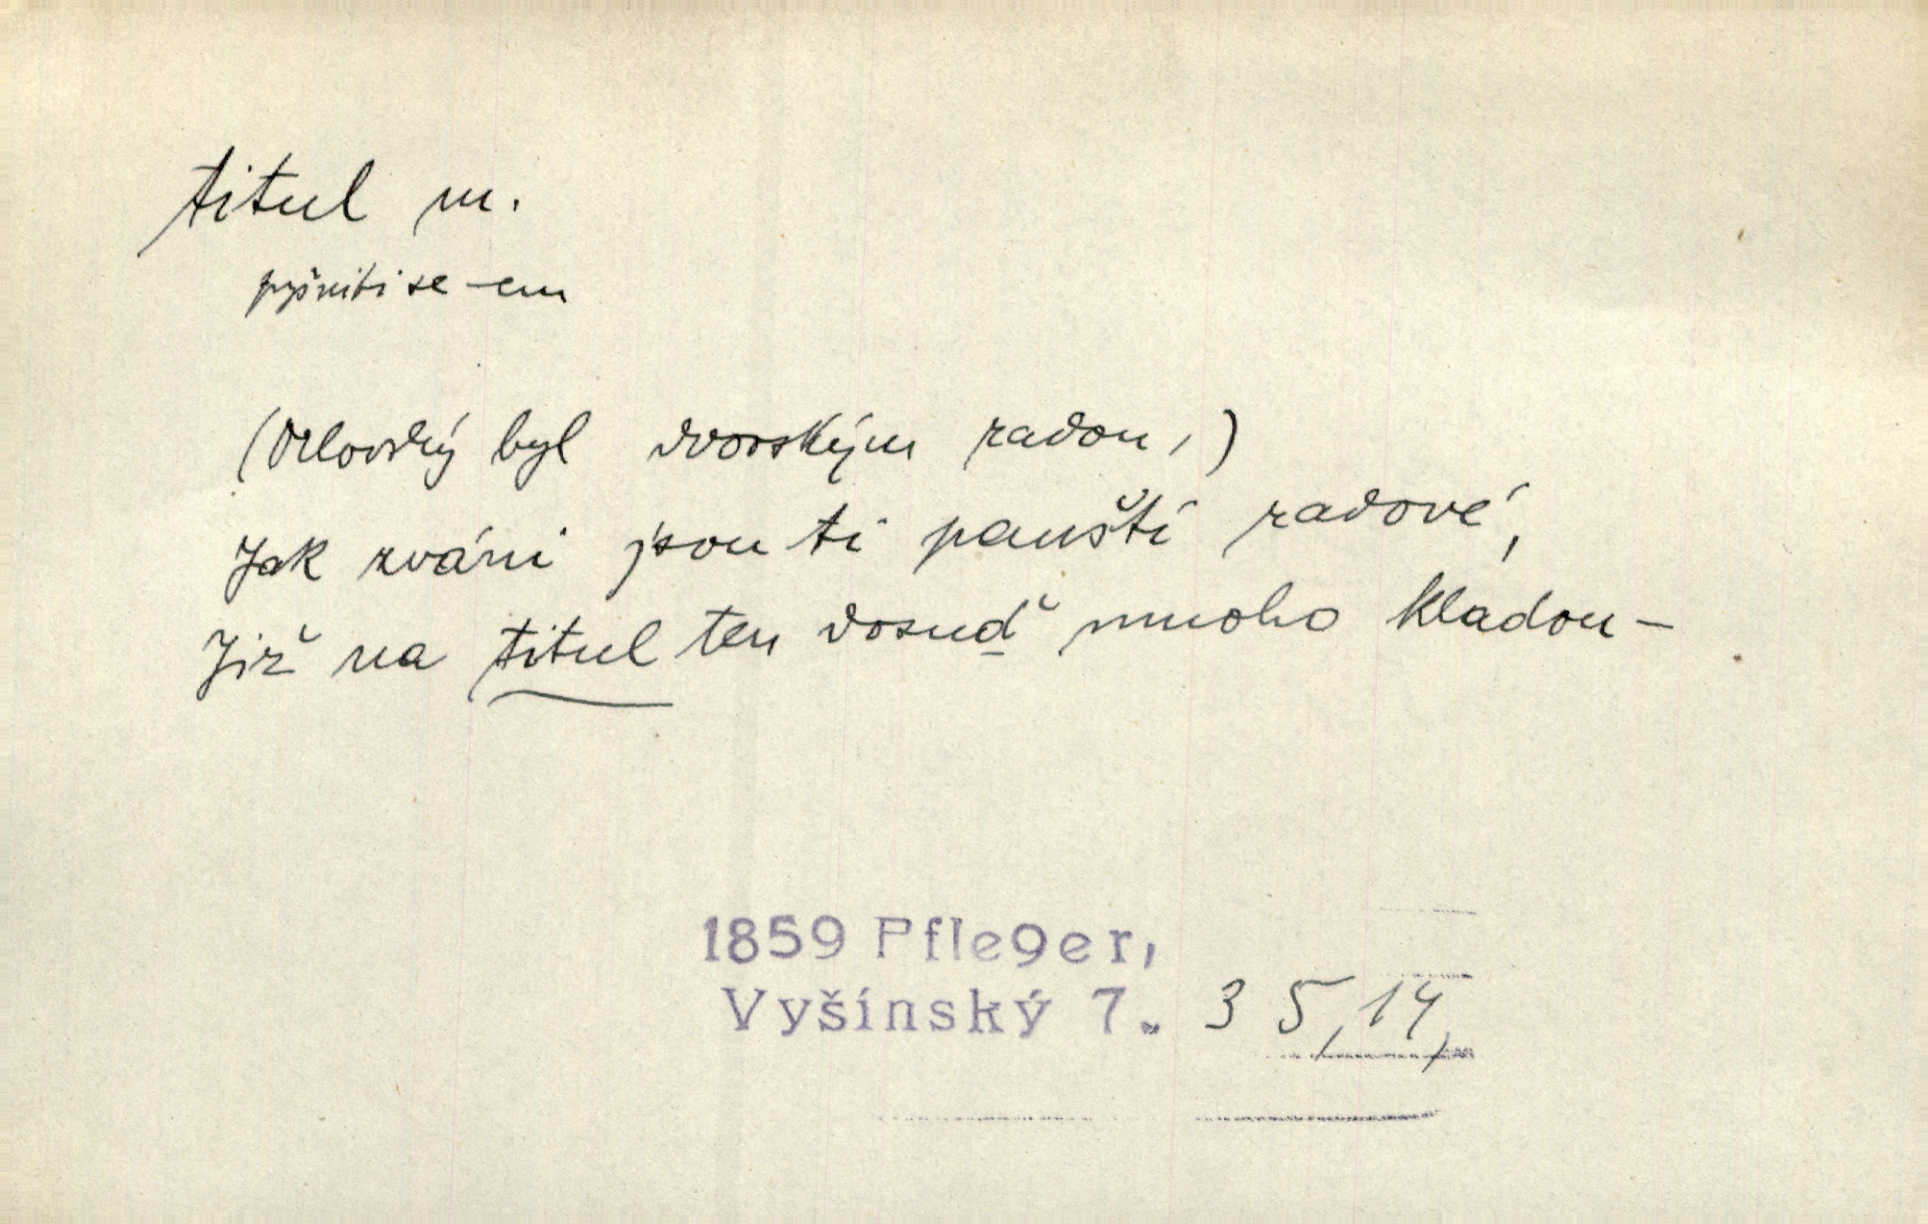 titul m.
pyšniti se -em
(Orlovský byl dvorským radou,)
Jak zváni jsou ti panští radové,
Již na titul ten dosud mnoho kladou –
1859 Pfleger,
Vyšínský 7. 35, 14,